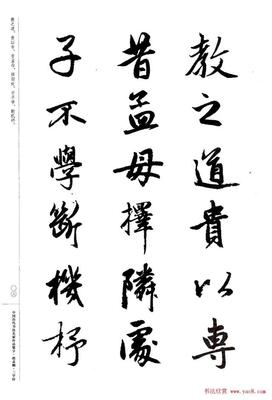 教之道貴以専
昔孟母擇隣處
子不學斷機杼
教之道，貴以專，昔孟母，擇鄰處，子不學，斷機杼。
书法欣赏
www.yac8.com